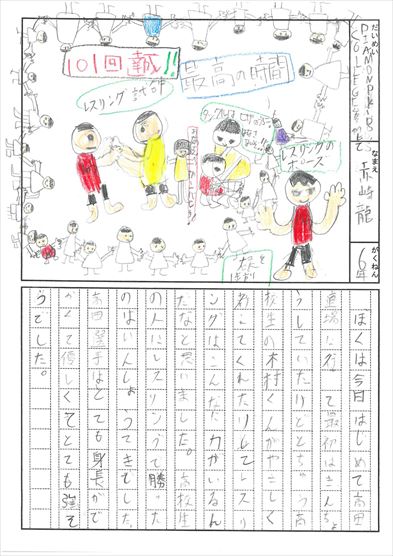 だいめい
DIAMOND KIDS
COLLEGEを見て
なまえ
赤崎龍
がくねん
6年
101回
!!
最高の時間
レスリング
レスリングの
ポーズ
ぼくは今日はじめて高田
道場に行って最初はきんちょ
うしていたけどとちゅう高
校生の木村くんがやさしく
教えてくれたりしてレスリ
ングはこんなに力がいるん
だなと思いました。高校生
の人にレスリングで勝った
のはいんしょうてきでした。
選手はとても身長がで
かくて優しくてとても強そ
うでした。